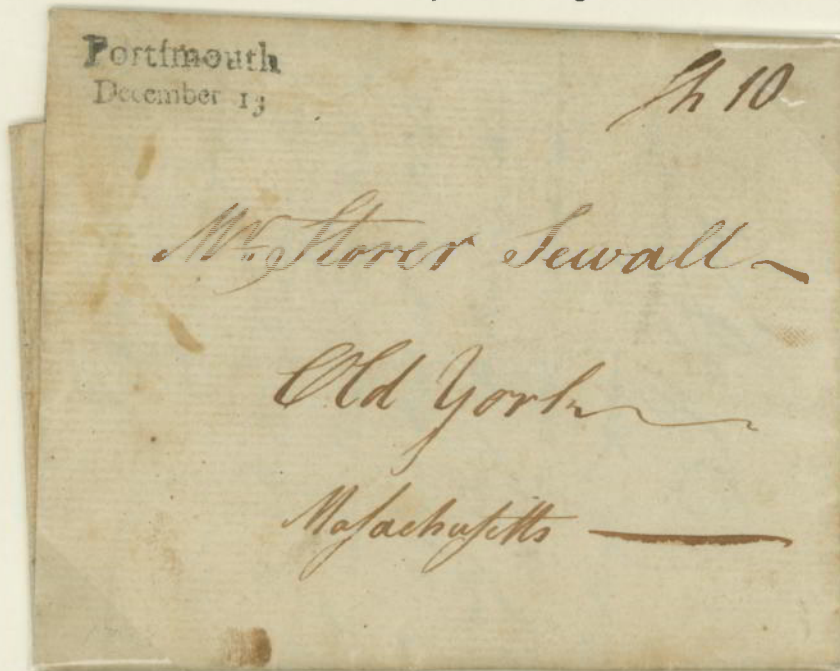 Portſmouth
December 13
Sh 10
Mr. Storer Sewall
Old York
Maſsachuſetts